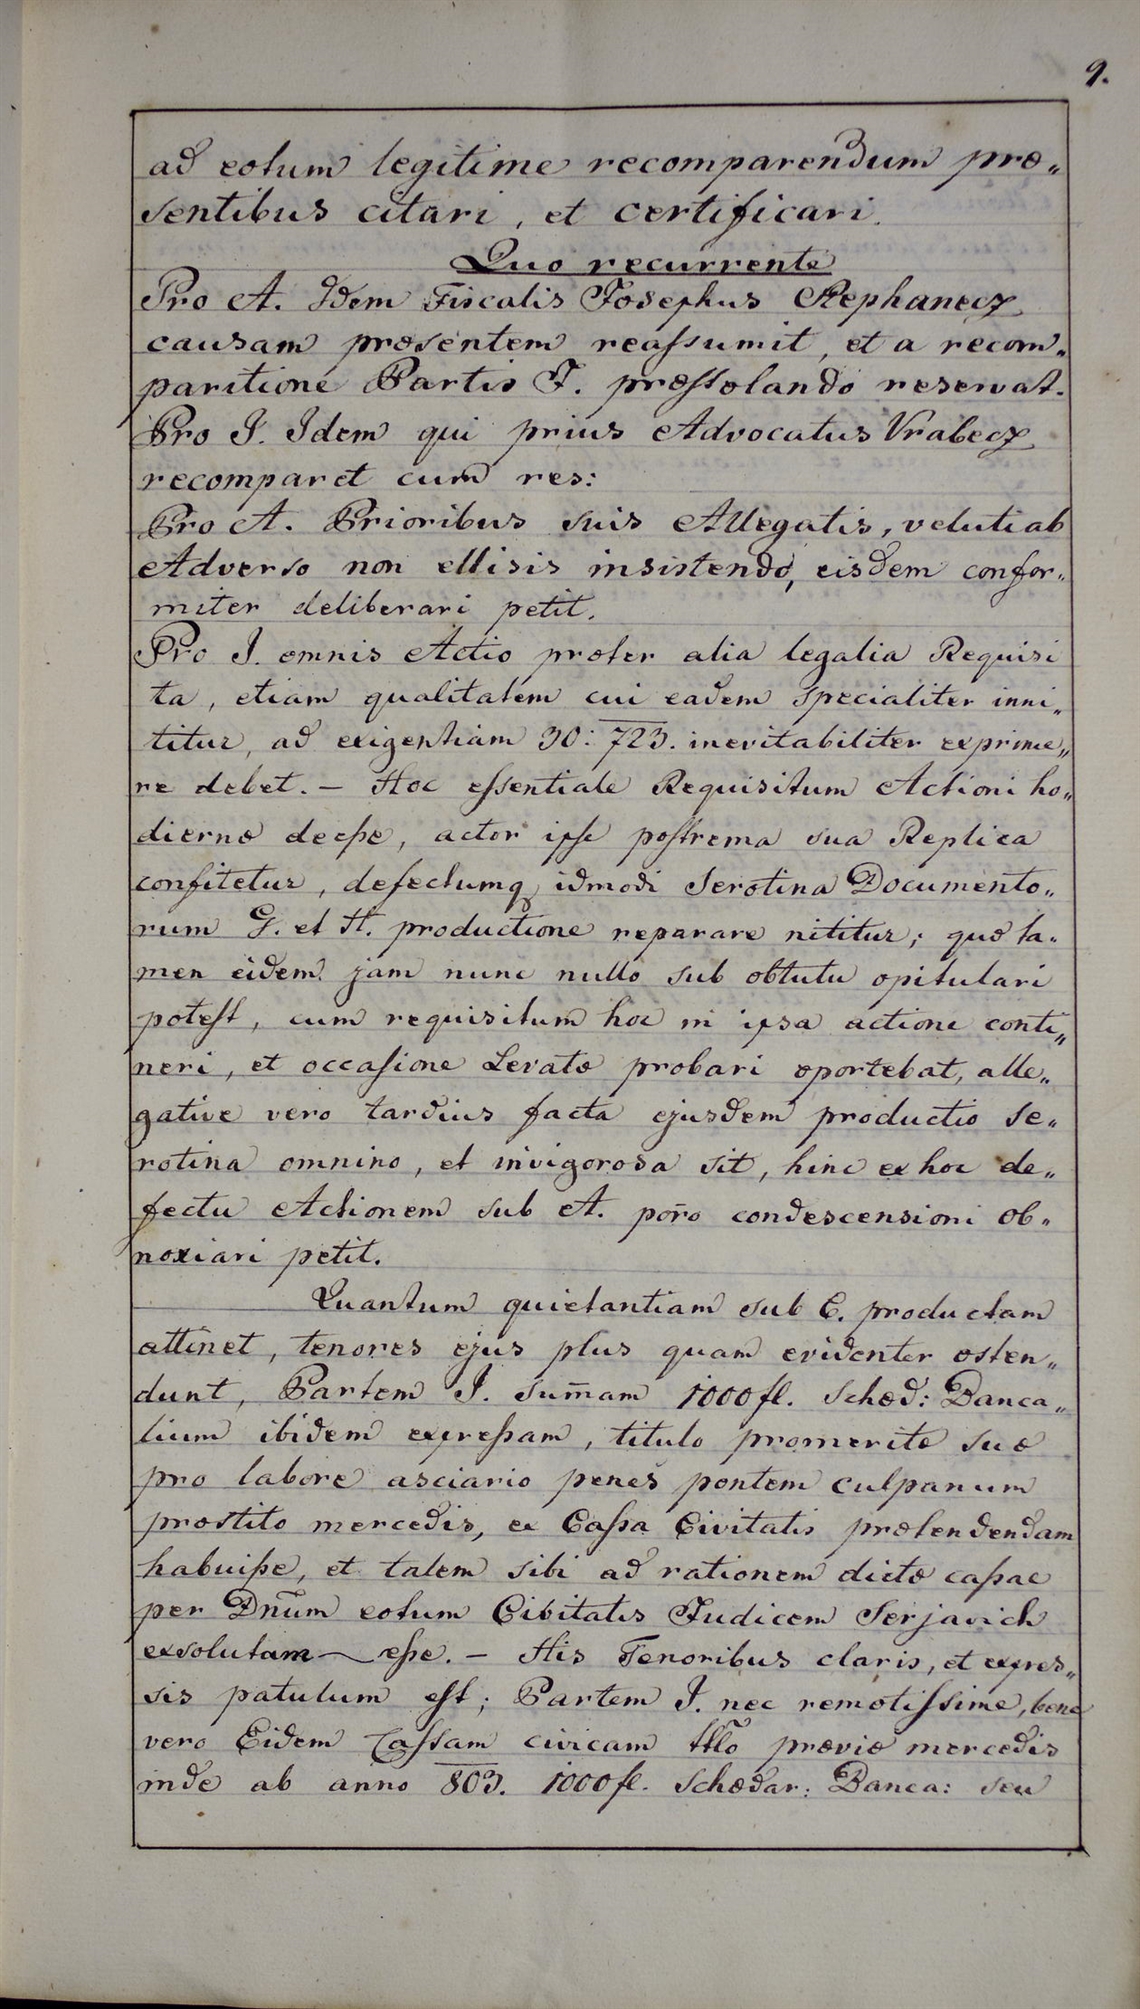 9.
ad eotum legitime recomparendum præ„
sentibus citari, et certificari.
Quo recurrente
Pro A. Idem Fiscalis Josephus Stephanecz
causam præsentem reassumit, et a recom„
paritione Partis I. præstolando reservat.
Pro I. Idem qui prius Advocatus Vrabecz
recomparet cum res:
Pro A. Prioribus suis Allegatis, veluti ab
Adverso non ellisis insistendo, eisdem confor„
miter deliberari petit.
Pro I. omnis Actio præter alia legalia Requisi
ta, etiam qualitatem cui eadem specialiter inni„
titur, ad exigentiam 30: 723. inevitabiliter exprime„
re debet. – Hoc essentiale Requisitum Actioni ho„
diernæ deesse, actor ipse postrema sua Replica
confitetur, defectumq idmodi Serotina Documento„
rum G. et H. productione reparare nititur; quæ ta„
men eidem jam nunc nullo sub obtutu opitulari
potest, cum requisitum hoc in ipsa actione conti„
neri, et occasione Levatæ probari oportebat, alle„
gative vero tardius facta ejusdem productio se„
rotina omnino, et invigorosa sit, hinc ex hoc de„
fectu Actionem sub A. porro condescensioni ob„
noxiari petit.
Quantum quietantiam sub C. productam
attinet, tenores ejus plus quam evidenter osten„
dunt, Partem I. sum̄am 1000 fl. Schæd: Banca„
lium ibidem expressam, titulo promeritæ suæ
pro labore asciario penes pontem culpanum
præstito mercedis, ex Cassa Civitatis prætendendam
habuisse, et talem sibi ad rationem dictæ cassae
per Dnum eotum Civitatis Judicem Serjavich
exsolutam esse. – His Tenoribus claris, et expres„
sis patulum est; Partem I. nec remotissime, bene
vero Eidem Cassam civicam ttlo præviæ mercedis
inde ab anno 803. 1000 fl. Schædar: Banca: seu